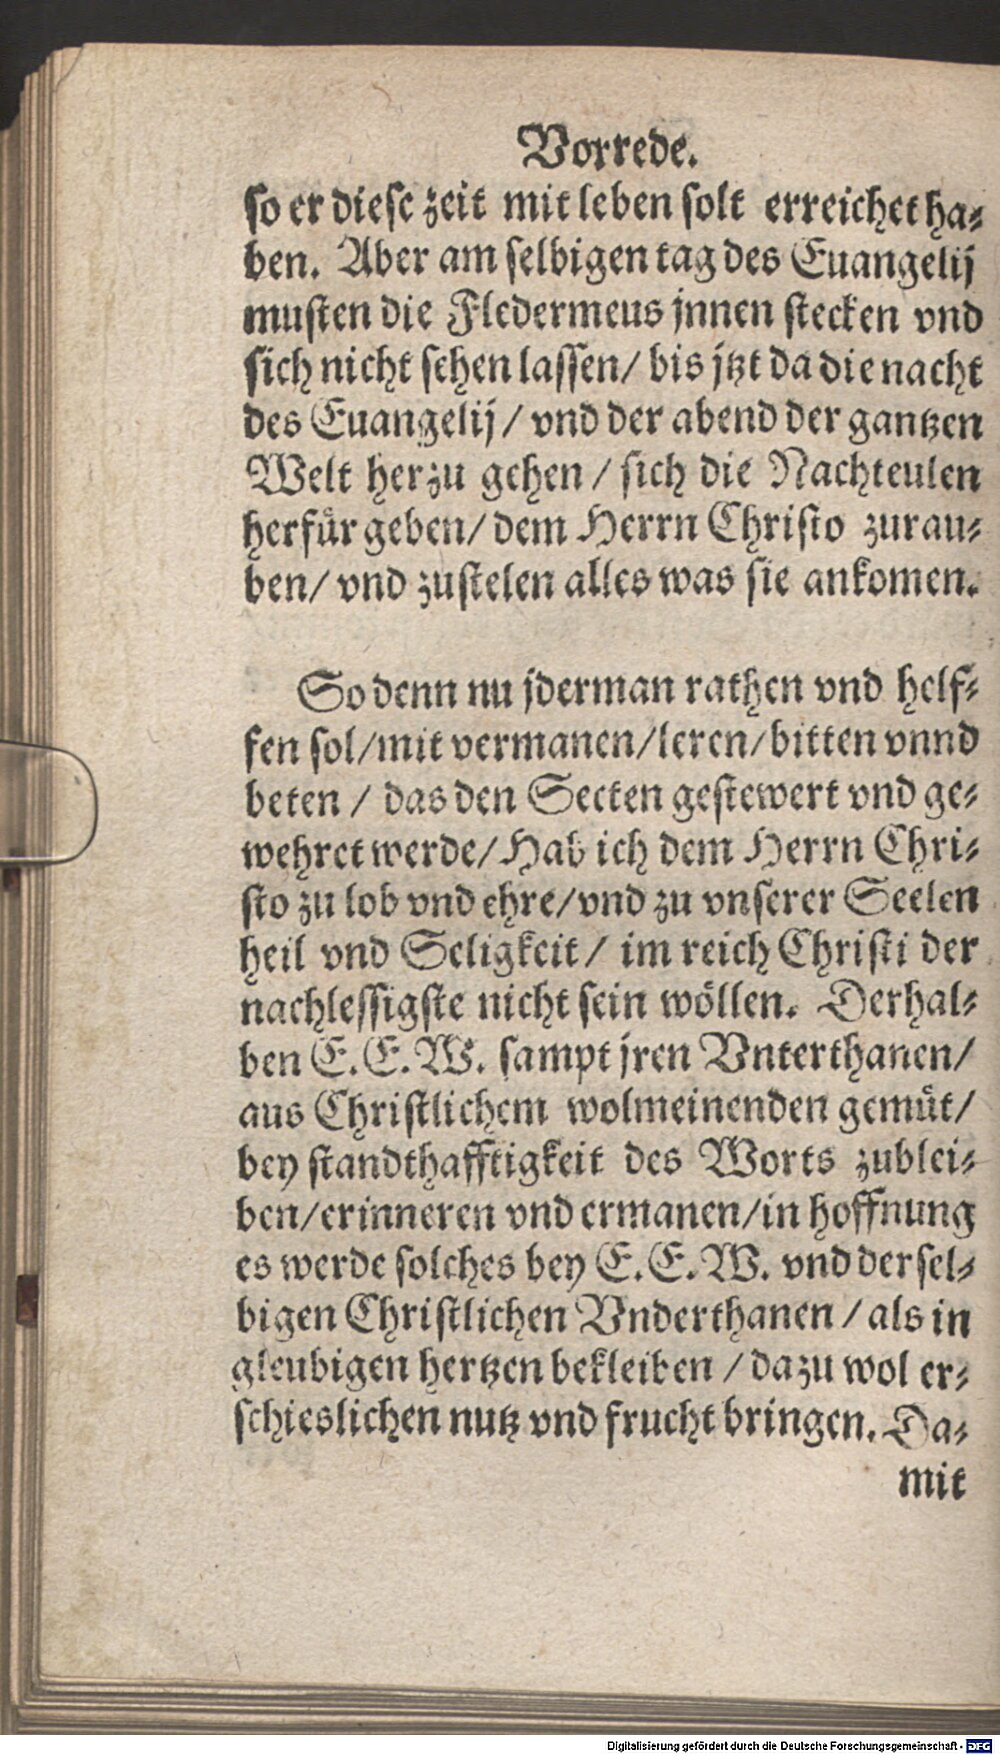 Vorrede.
so er diese zeit mit leben solt erreichet ha-
ben. Aber am selbigen tag des Euangelij
musten die Fledermeus jnnen stecken vnd
sich nicht sehen lassen/ bis jtzt da die nacht
des Euangelij/ vnd der abend der gantzen
Welt herzu gehen/ sich die Nachteulen
herfür geben/ dem Herrn Christo zurau-
ben/ vnd zustelen alles was sie ankomen.
So denn nu jderman rathen vnd helf-
fen sol/ mit vermanen/ leren/ bitten vnnd
beten/ das den Secten gestewert vnd ge-
wehret werde/ Hab ich dem Herrn Chri-
sto zu lob vnd ehre/ vnd zu vnserer Seelen
heil vnd Seligkeit/ im reich Christi der
nachlessigste nicht sein wöllen. Derhal-
ben E. E. W. sampt jren Vnterthanen/
aus Christlichem wolmeinenden gemüt/
bey standthafftigkeit des Worts zublei-
ben/ erinneren vnd ermanen/ in hoffnung
es werde solches bey E. E. W. vnd dersel-
bigen Christlichen Vnderthanen/ als in
gleubigen hertzen bekleiben/ dazu wol er-
schieslichen nutz vnd frucht bringen. Da-
mit
Digitalisierung gefördert durch die Deutsche Forschungsgemeinschaft - DFG